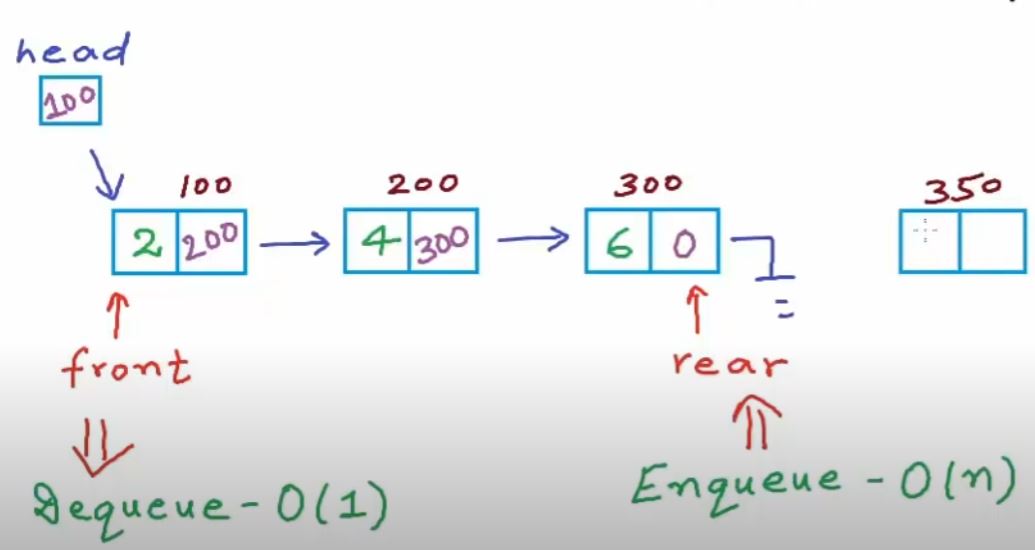 head
100
100 200 300 350
2 200 4 300 6 0
front rear
Dequeue - O(1) Enqueue - O(n)